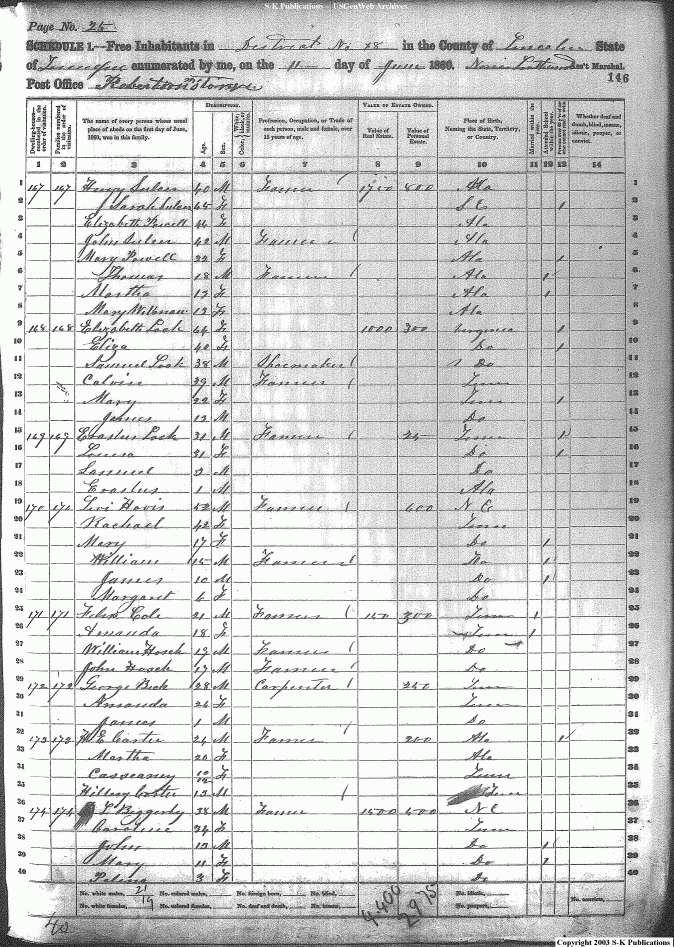 S-K Publications - USGenWeb Archives
Page No. 25
SCHEDULE 1.—Free Inhabitants in District No 18 in the County of Lincoln State
of Tennessee enumerated by me, on the 11 day of June 1860. Ass't Marshal.
Post Office
146
DESCRIPTION.
VALUE OF ESTATE OWNED.
Dwelling-houses—numbered in the order of visitation.
Families numbered in the order of visitation.
The name of every person whose usual place of abode on the first day of June, 1860, was in this family.
Age.
Sex.
Color, White, black, or mulatto.
Profession, Occupation, or Trade of each person, male and female, over 15 years of age.
Value of Real Estate.
Value of Personal Estate.
Place of Birth, Naming the State, Territory, or Country.
Married within the year.
Whether deaf and dumb, blind, insane, idiotic, pauper, or convict.
1 2 3 4 5 6 7 8 9 10 11 12 13 14
1 167 167 Henry 40 M Farmer 1750 800 Ala 1
2 Sarah 65 F 1 2
3 Elizabeth Powell 46 F Ala 3
4 John 42 M Farmer Ala 4
5 Mary Powell 22 F Ala 1 5
6 Thomas 18 M Farmer Ala 1 6
7 Martha 13 F Ala 1 7
8 Mary 13 F Ala 8
9 168 168 Elizabeth Lock 64 F 1000 300 Virginia 1 9
10 Eliza 40 F Do 1 10
11 Samuel Lock 38 M Shoemaker Do 11
12 Calvin 29 M Farmer Tenn 12
13 Mary 22 F Tenn 1 13
14 James 12 M Do 14
15 169 169 Erastus Lock 31 M Farmer 25 Tenn 1 15
16 Louisa 31 F Do 1 16
17 Samuel 3 M Do 17
18 Erastus 1 M Ala 18
19 170 170 Levi Hovis 52 M Farmer 600 N C 19
20 Rachael 42 F Tenn 20
21 Mary 17 F Do 1 21
22 William 15 M Farmer Do 1 22
23 James 10 M Do 1 23
24 Margaret 6 F Do 24
25 171 171 Cole 21 M Farmer 150 300 Tenn 1 25
26 Amanda 18 F Tenn 1 26
27 William Hosch 19 M Farmer Do 27
28 John Hosch 17 M Farmer Do 28
29 172 172 George Beck 28 M Carpenter 250 Tenn 29
30 Amanda 26 F Tenn 30
31 James 1 M Do 31
32 173 173 E Carter 24 M Farmer 200 Ala 1 32
33 Martha 20 F Ala 33
34 10/12 F Tenn 34
35 Carter 13 M Tenn 35
36 174 174 Biggerly 38 M Farmer 1500 500 N C 36
37 Caroline 34 F Tenn 37
38 John 13 M Do 1 38
39 Mary 11 F Do 1 39
40 3 F Do 40
No. white males, 21 No. colored males, No. foreign born, No. blind, No. idiotic,
No. white females, 19 No. colored females, No. deaf and dumb, No. insane, 4.400 2975 No. paupers, No. convicts,
40
Copyright 2003 S-K Publications